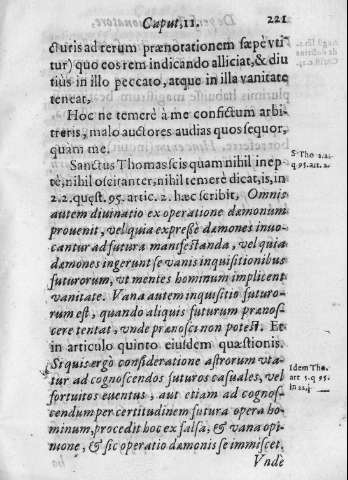 Caput, 11. 221
cturis ad rerum prænotationem sæpè vti
tur) quo eos rem indicando alliciat, & diu
tiùs in illo peccato, atque in illa vanitate
teneat.
Hoc ne temerè à me confictum arbi-
treris, malo auctores audias quos sequor,
quam me.
Sanctus Thomas scis quam nihil inep-
tè, nihil oscitanter, nihil temerè dicat, is, in
2.2. quęst. 95. artic. 2. hæc scribit, Omnis
autem diuinatio ex operatione dæmonum
prouenit, vel quia expreßè dæmones inuo-
cantur ad futura manifestanda, vel quia
dæmones ingerunt se vanis inquisitionibus
futurorum, vt mentes hominum implicent
vanitate. Vana autem inquisitio futuro-
rum est, quando aliquis futurum prænos
cere tentat, vnde prænosci non potest. Et
in articulo quinto eiusdem quæstionis.
Si quis ergò consideratione astrorum vta-
tur ad cognoscendos futuros casuales, vel
fortuitos euentus, aut etiam ad cognos-
cendum per certitudinem futura opera ho-
minum, procedit hoc ex falsa, & vana opi-
nione, & sic operatio dæmonis se immiscet.
Vndè
S Tho 2.2.
q 95. art. 2.
Idem Tho.
art 5. q 95.